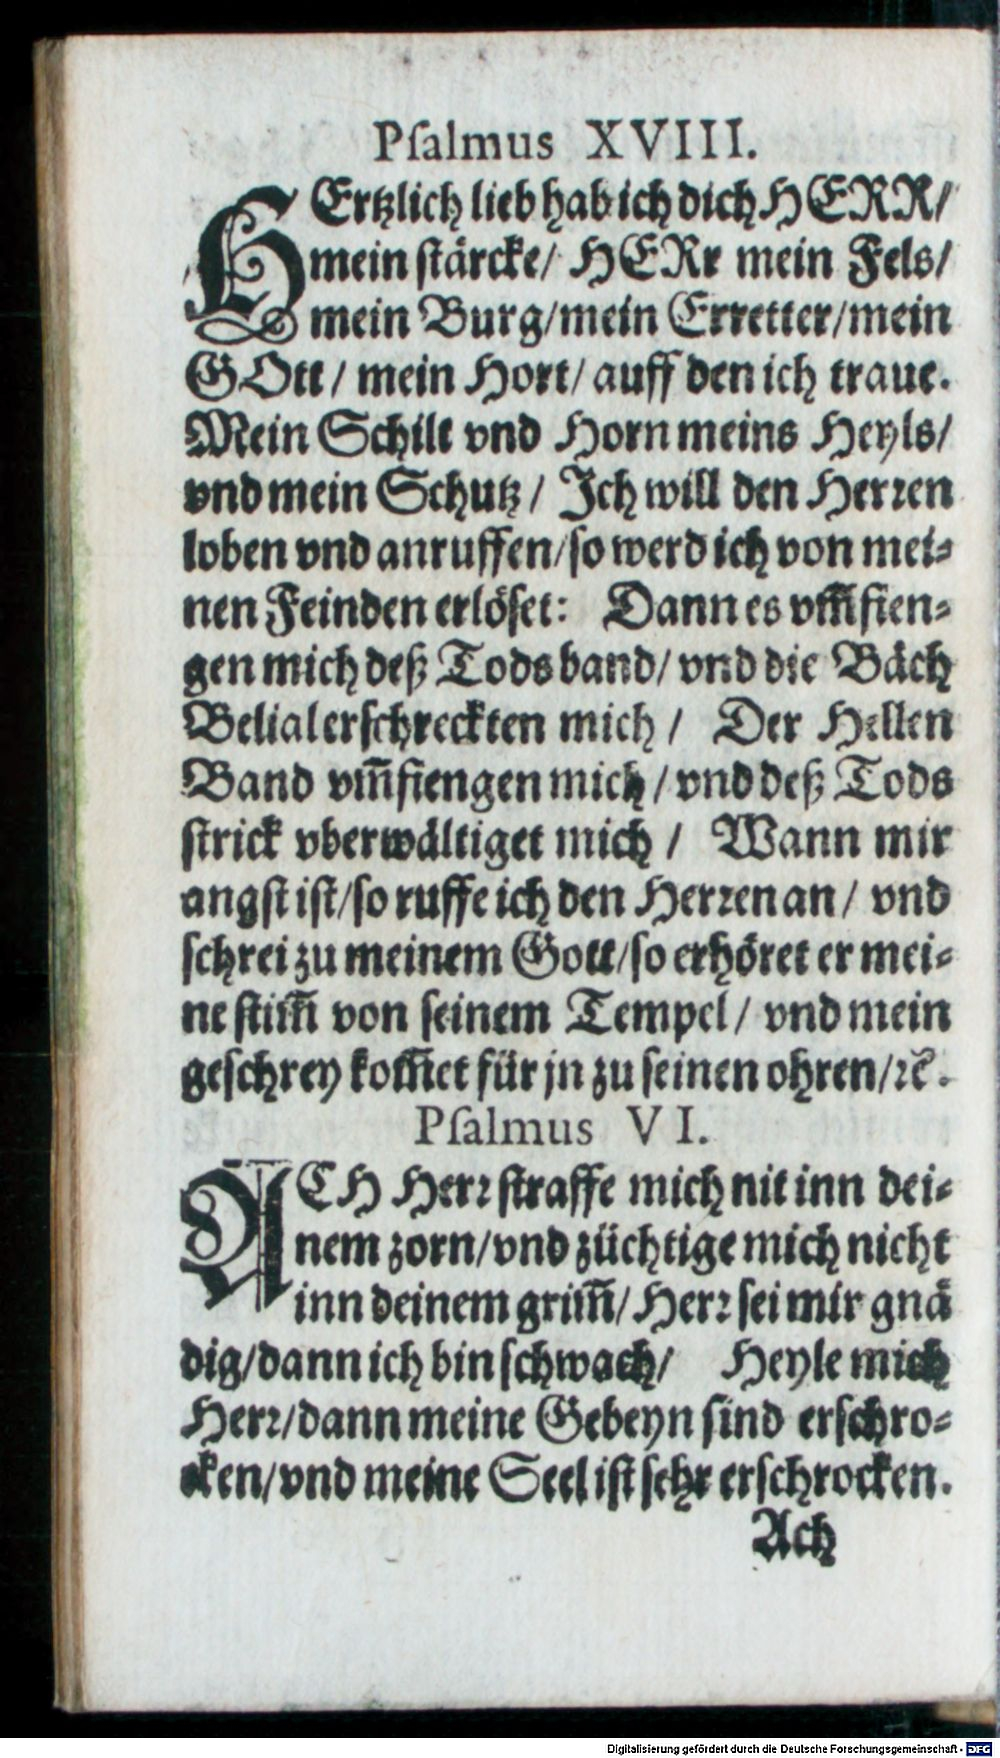 Pſalmus XVIII.
HErtzlich lieb hab ich dich HERR/
mein ſtärcke/ HERr mein Fels/
mein Burg/mein Erretter/mein
GOtt/ mein Hort/ auff den ich traue.
Mein Schilt vnd Horn meins Heyls/
vnd mein Schutz/ Jch will den Herꝛen
loben vnd anruffen/ſo werd ich von mei⸗
nen Feinden erlöſet: Dann es vm̃fien⸗
gen mich deß Tods band/ vnd die Bäch
Belial erſchreckten mich/ Der Hellen
Band vm̃fiengen mich/ vnd deß Tods
ſtrick vberwältiget mich/ Wann mir
angſt iſt/ſo ruffe ich den Herꝛen an/ vnd
ſchrei zu meinem Gott/ſo erhöret er mei⸗
ne ſtim̃ von ſeinem Tempel/ vnd mein
geſchrey kom̃et für jn zu ſeinen ohren/ꝛc̄.
Pſalmus VI.
ACH Herꝛ ſtraffe mich nit inn dei⸗
nem zorn/vnd züchtige mich nicht
inn deinem grim̃/ Herꝛ ſei mir gnä
dig/dann ich bin ſchwach/ Heyle mich
Herꝛ/dann meine Gebeyn ſind erſchro⸗
cken/vnd meine Seel iſt ſehr erſchrocken.
Ach
Digitalisierung gefördert durch die Deutsche Forschungsgemeinschaft - DFG